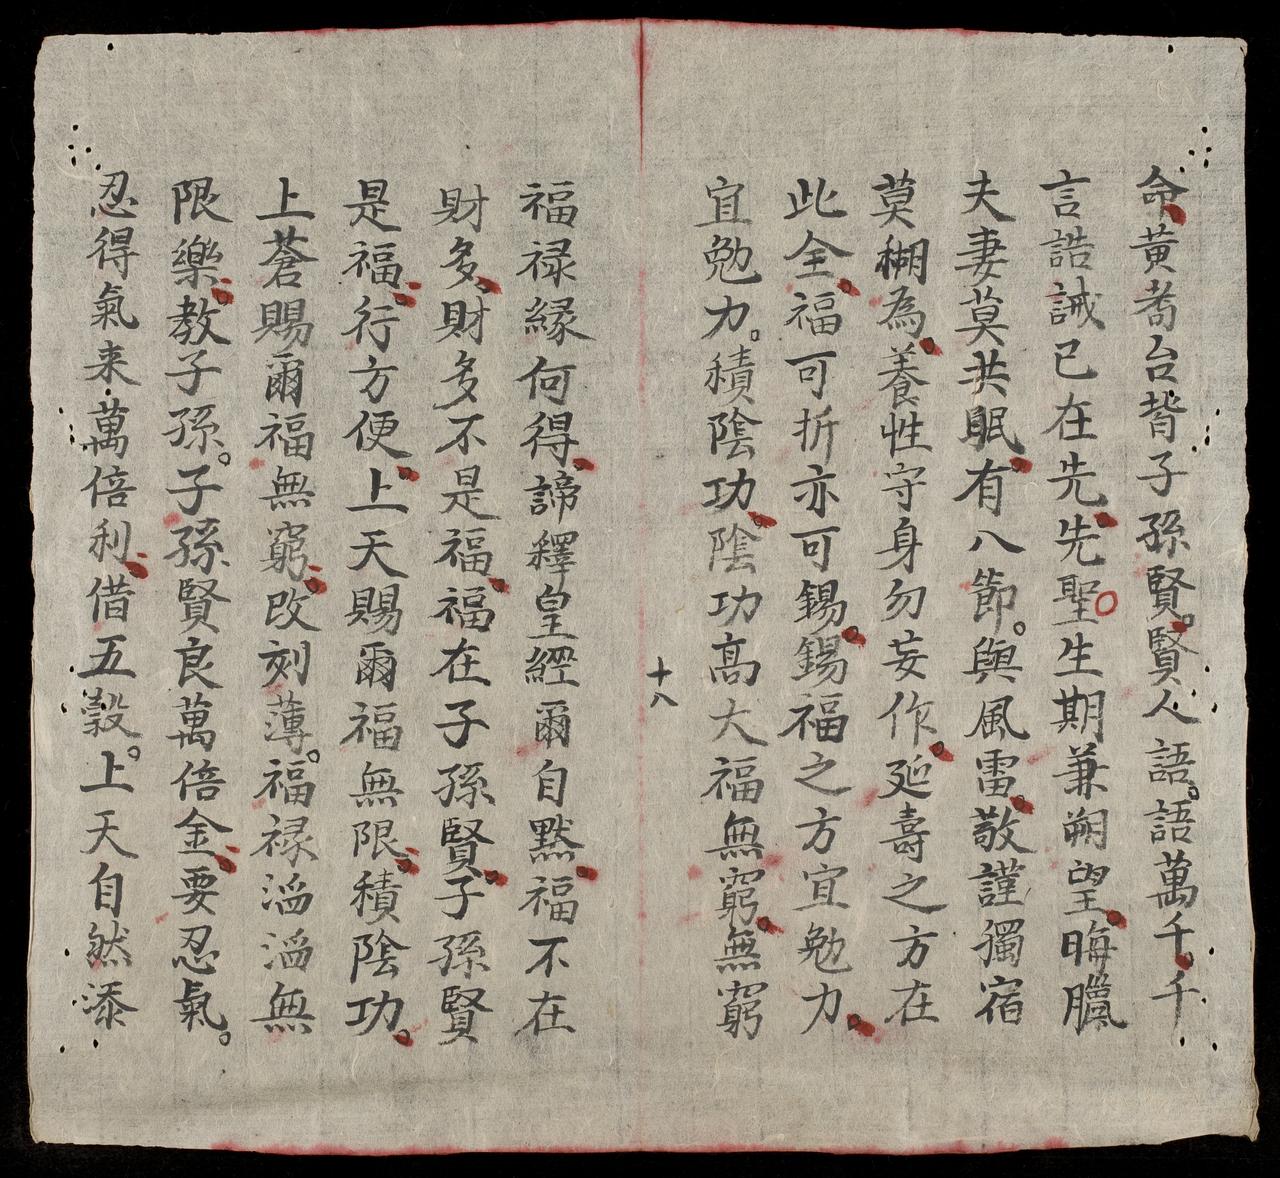 命黃耈台背子孫賢。賢人語。語萬千。千
言誥誡已在先。先聖○生期兼朔望。晦臘
夫妻莫共眠。有八節。與風雷。敬謹獨宿
莫糊為。養性守身勿妄作。延壽之方在
此全。福可折亦可錫。錫福之方宜勉力。
宜勉力。積陰功。陰功高大福無窮。無窮
十八
福禄緣何得。諦釋皇經爾自黙。福不在
財多。財多不是福。福在子孫賢。子孫賢
是福。行方便。上天賜爾福無限。積陰功。
上蒼賜爾福無窮。改刻薄。福禄滔滔無
限樂。教子孫。子孫賢良萬倍金。要忍氣。
忍得氣来萬倍利。借五穀。上天自然添